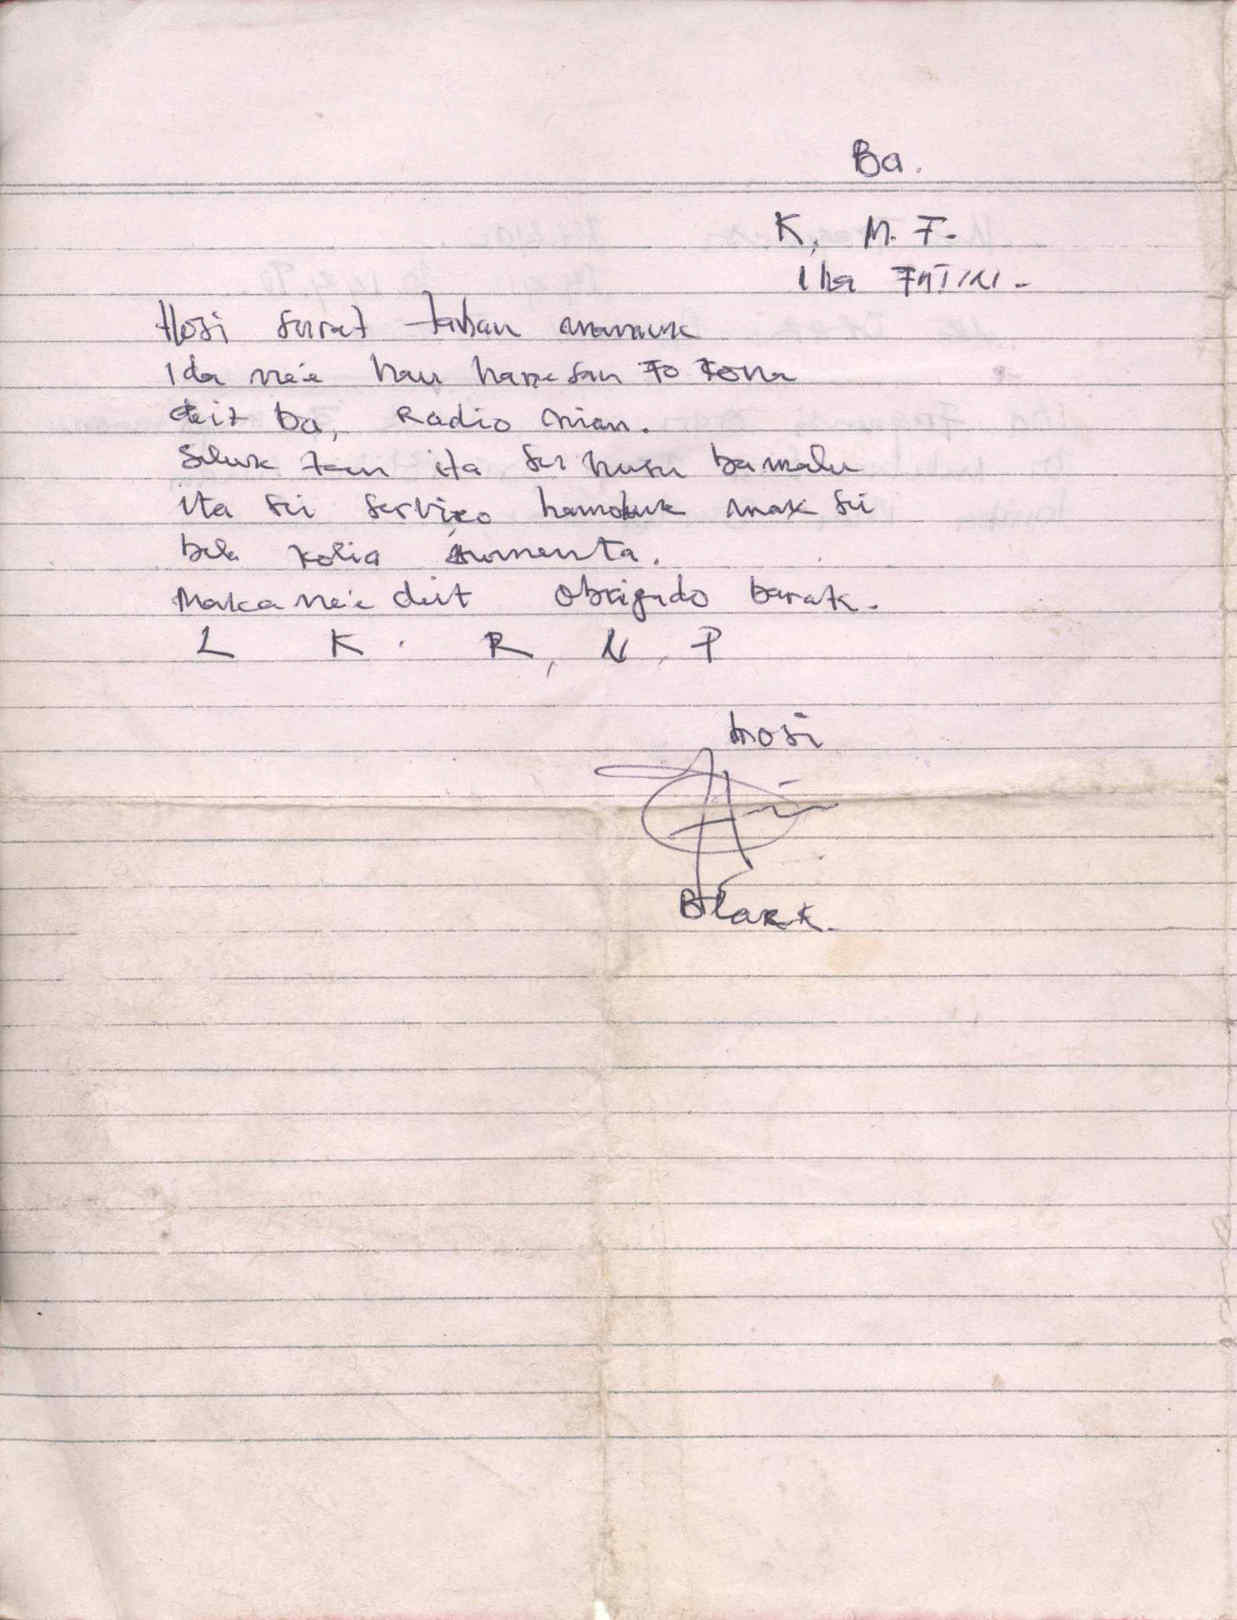 Ba.
K, M. F.
Iha FATIN -
Hosi surat tahan mamuk
Ida ne'e hau haruka fan Fo Fona
deit ba, Radio nian.
Seluk tan ita sei husu ba malu
Ita sei servico hamotuk mak sei
bele kolia
Maka ne'e deit Obrigado barak.
L K. R, N, P
hosi